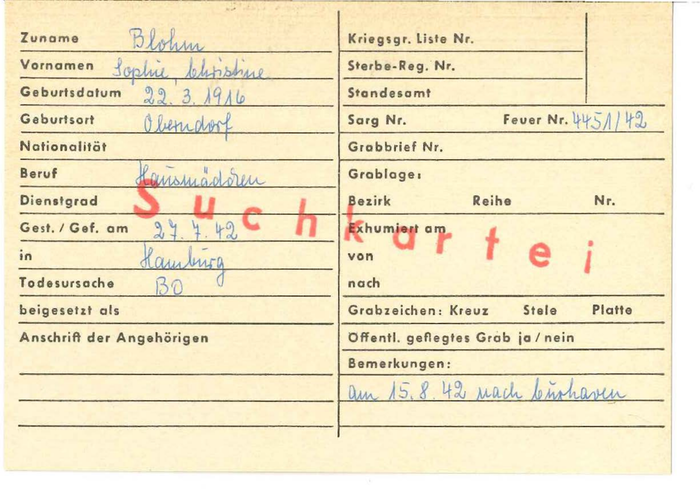 Zuname Blohm
Vornamen Sophie, Christine
Geburtsdatum 22. 3. 1916
Geburtsort Oberndorf
Nationalität
Beruf Hausmädchen
Dienstgrad
Gest. / Gef. am 27. 7. 42
in Hamburg
Todesursache BO
beigesetzt als
Anschrift der Angehörigen
Kriegsgr. Liste Nr.
Sterbe-Reg. Nr.
Standesamt
Sarg Nr. Feuer Nr. 4451/42
Grabbrief Nr.
Grablage:
Bezirk Reihe Nr.
Exhumiert am
von
nach
Grabzeichen: Kreuz Stele Platte
Öffentl. geflegtes Grab ja / nein
Bemerkungen:
am 15. 8. 42 nach Cuxhaven
Suchkartei